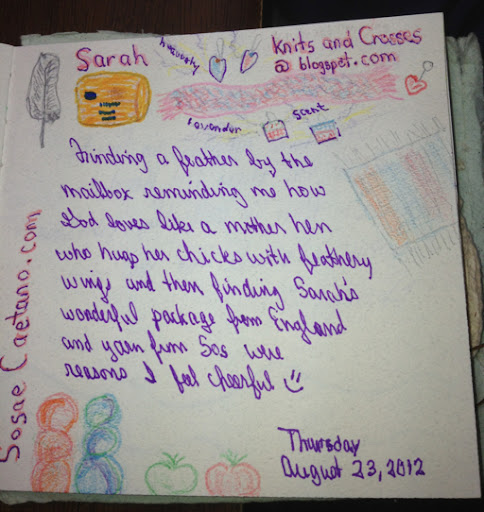 Sarah
Knits and Crosses
@ blogspot.com
lavender
scent
Finding a feather by the
mailbox reminding me how
God loves like a mother hen
who hugs her chicks with feathery
wings and then finding Sarah's
wonderful package from England
and yarn from Sos were
reasons I feel cheerful
Sosae Caetano.com
Thursday
August 23, 2012